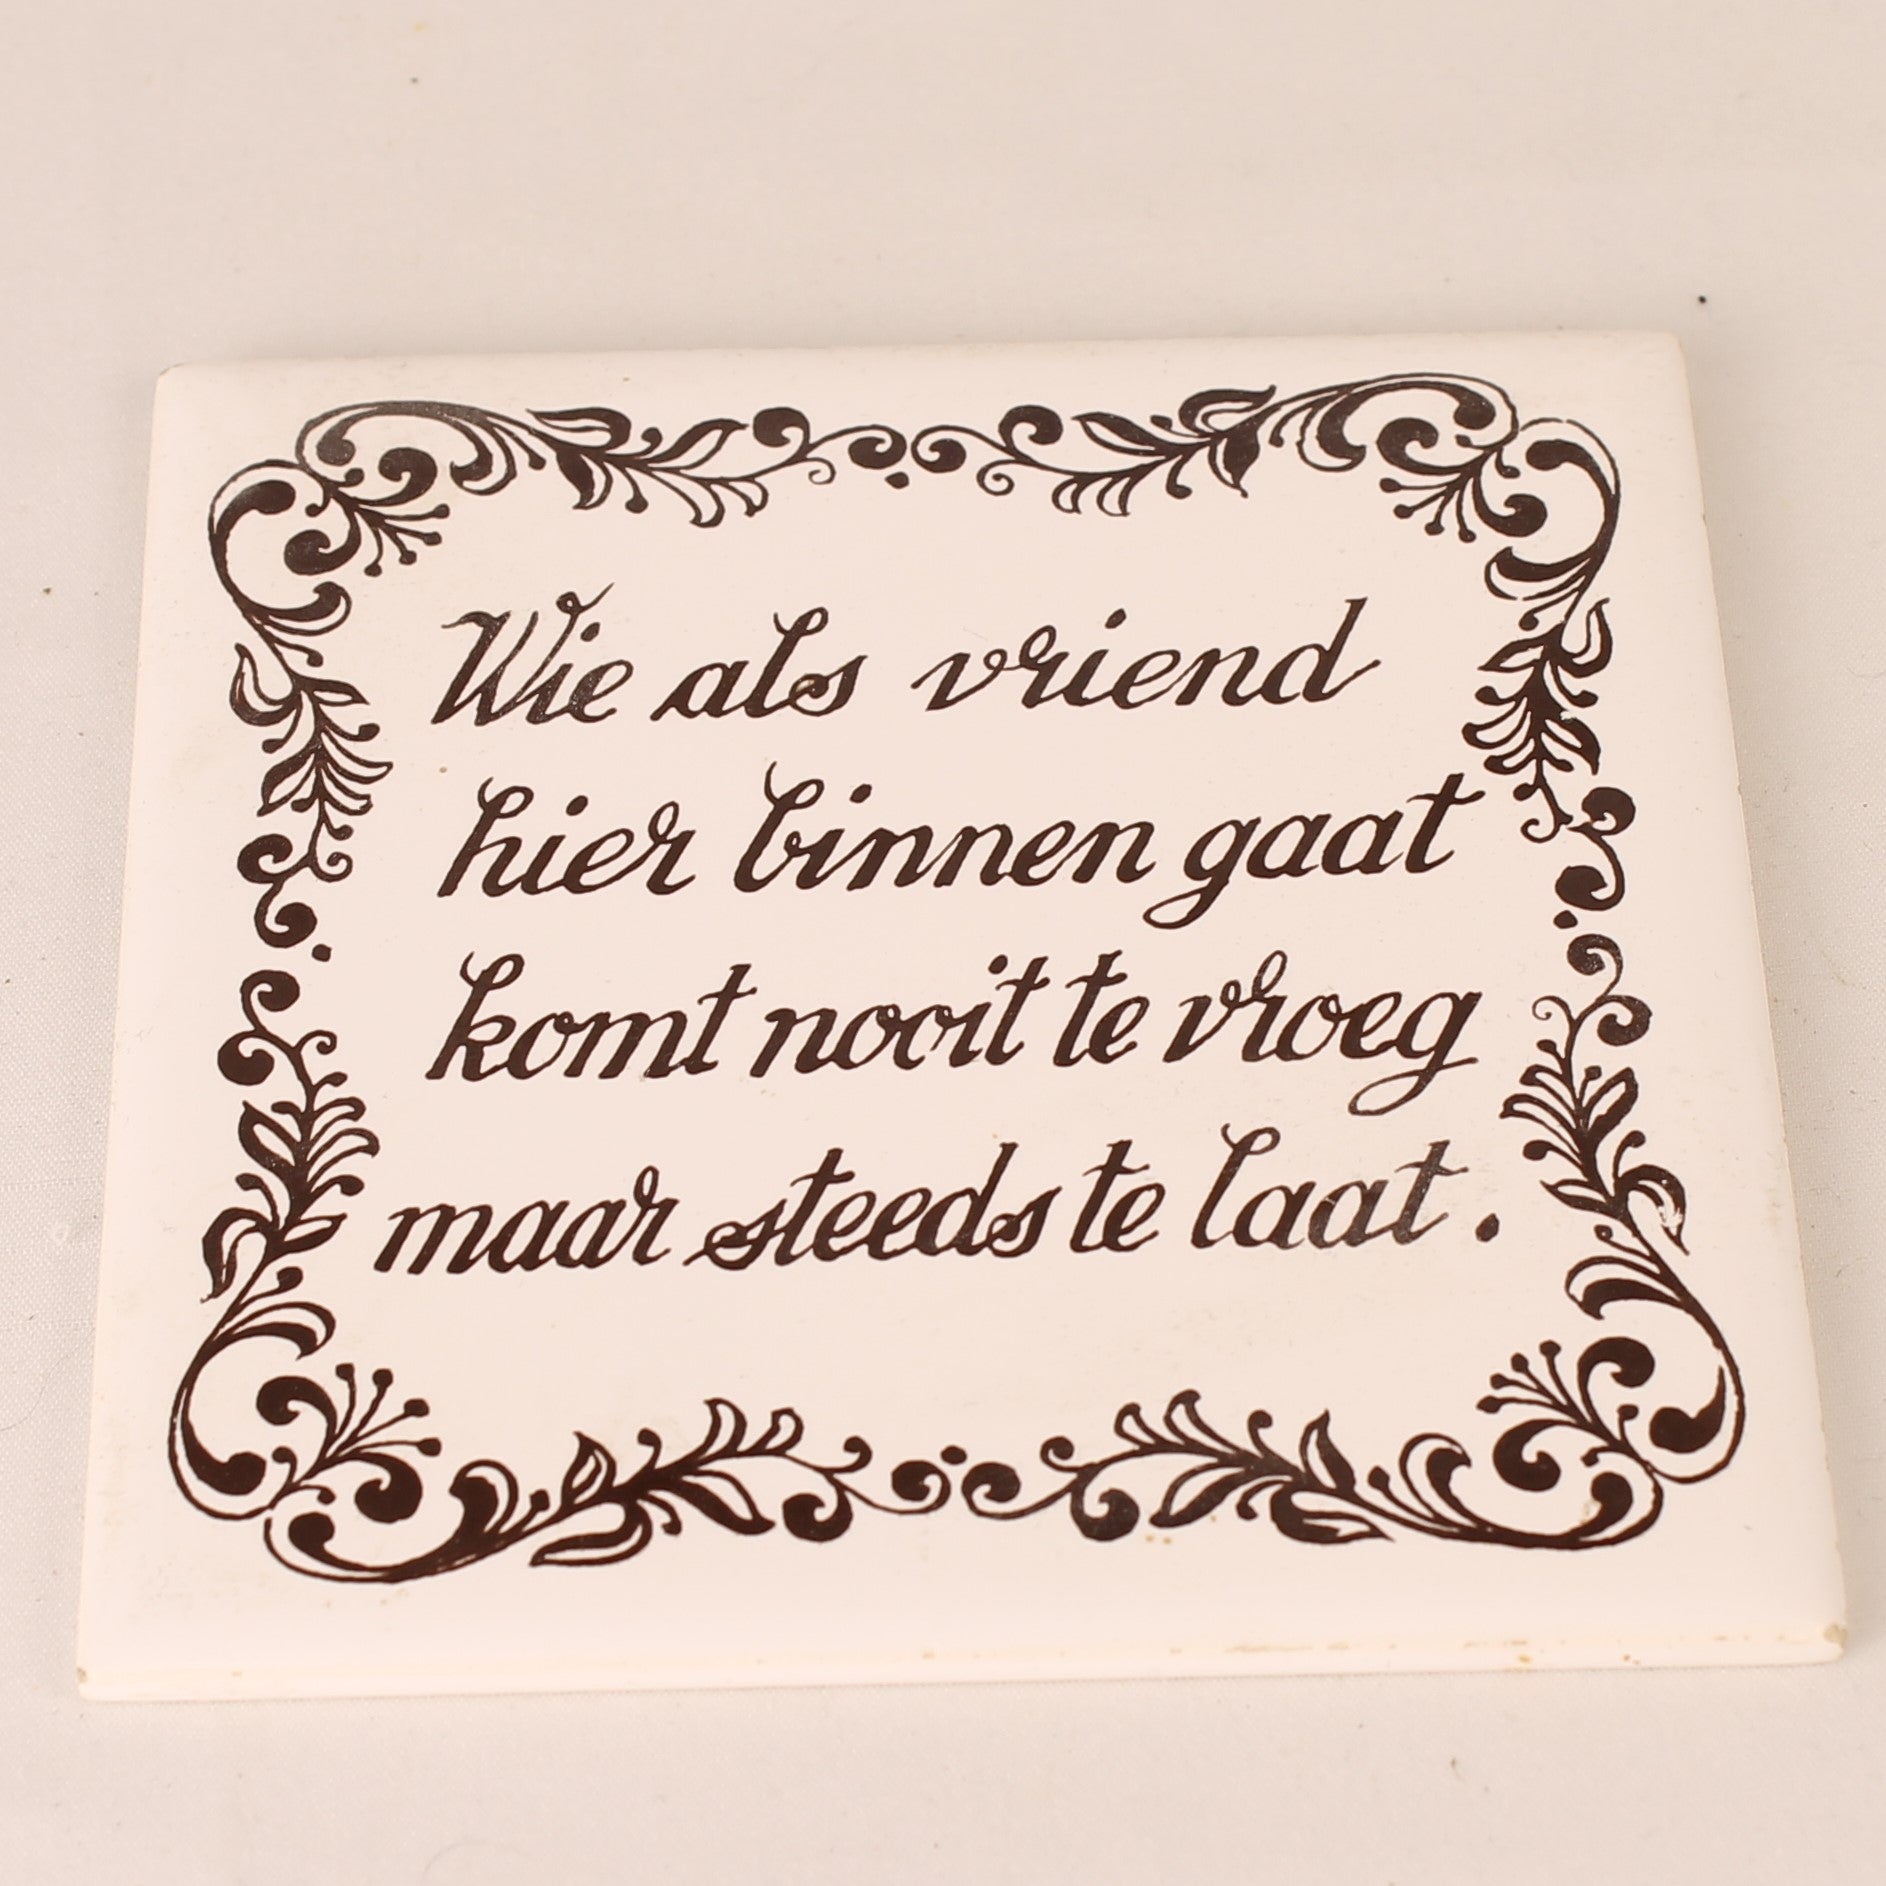 Wie als vriend
hier binnen gaat
komt nooit te vroeg
maar steeds te laat.